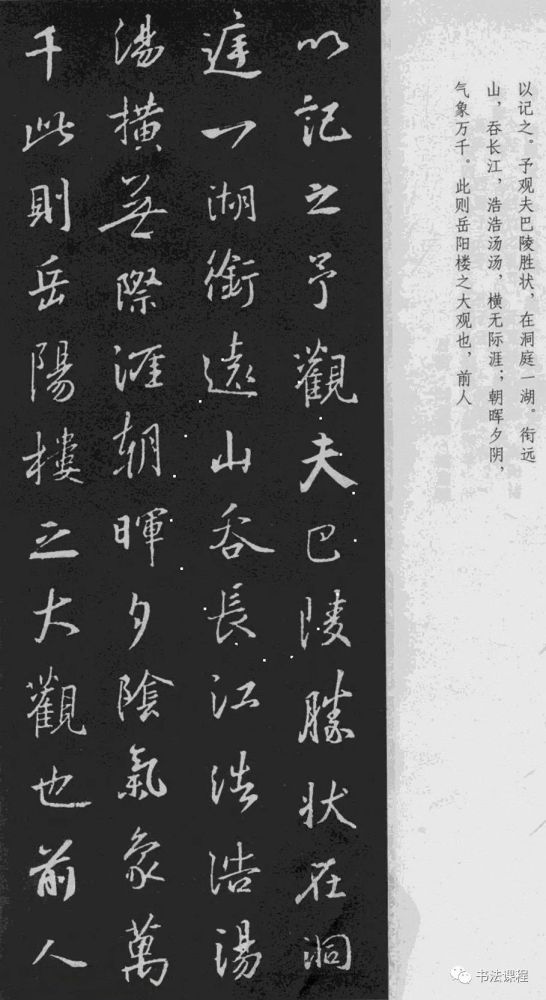 以记之。予观夫巴陵胜状，在洞庭一湖。衔远
山，吞长江，浩浩汤汤，横无际涯；朝晖夕阴，
气象万千。此则岳阳楼之大观也，前人
以記之予觀夫巴陵勝状在洞
庭一湖銜遠山吞長江浩浩湯
湯橫無際涯朝暉夕陰氣象萬
千此則岳陽樓之大觀也前人
书法课程